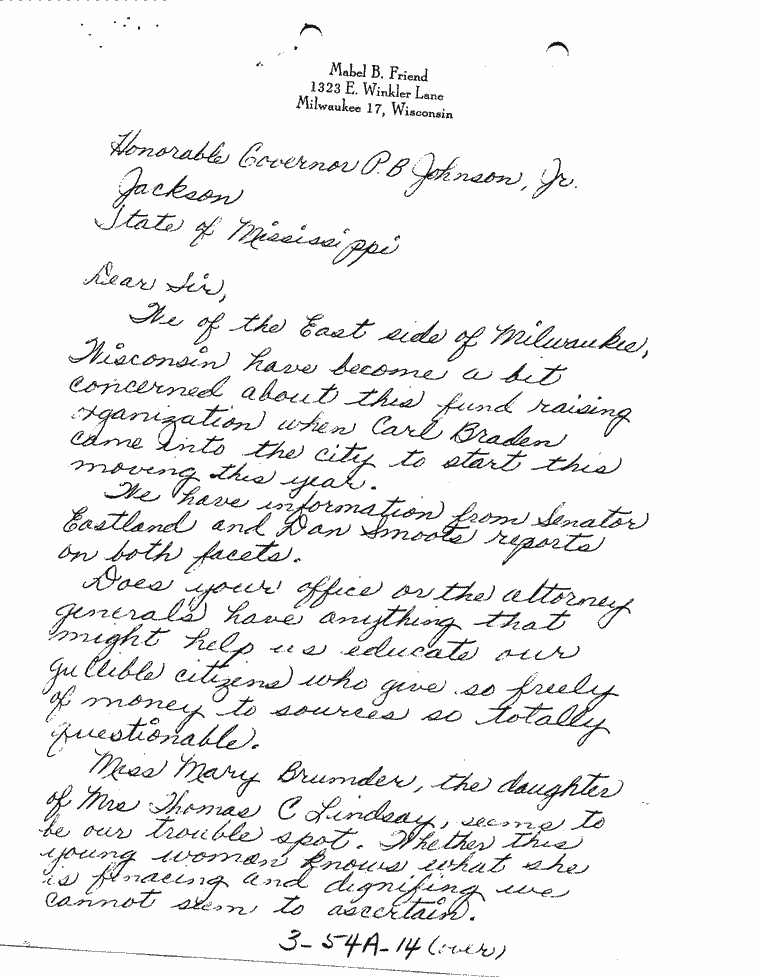 Mabel B. Friend
1323 E. Winkler Lane
Milwaukee 17, Wisconsin
Honorable Governor P.B Johnson, Jr.
Jackson
State of Mississippi
Dear Sir,
We of the East side of Milwaukee,
Wisconsin have become a bit
concerned about this fund raising
organization when Carl Braden
came into the city to start this
moving this year.
We have information from Senator
Eastland and Dan Smoots reports
on both facets.
Does your office or the attorney
generals have anything that
might help us educate our
gullible citizens who give so freely
of money to sources so totally
questionable.
Miss Mary Brumder, the daughter
of Mrs Thomas C Lindsay, seems to
be our trouble spot. Whether this
young woman knows what she
is finacing and dignifing we
cannot seem to ascertain.
3-54A-14 (over)